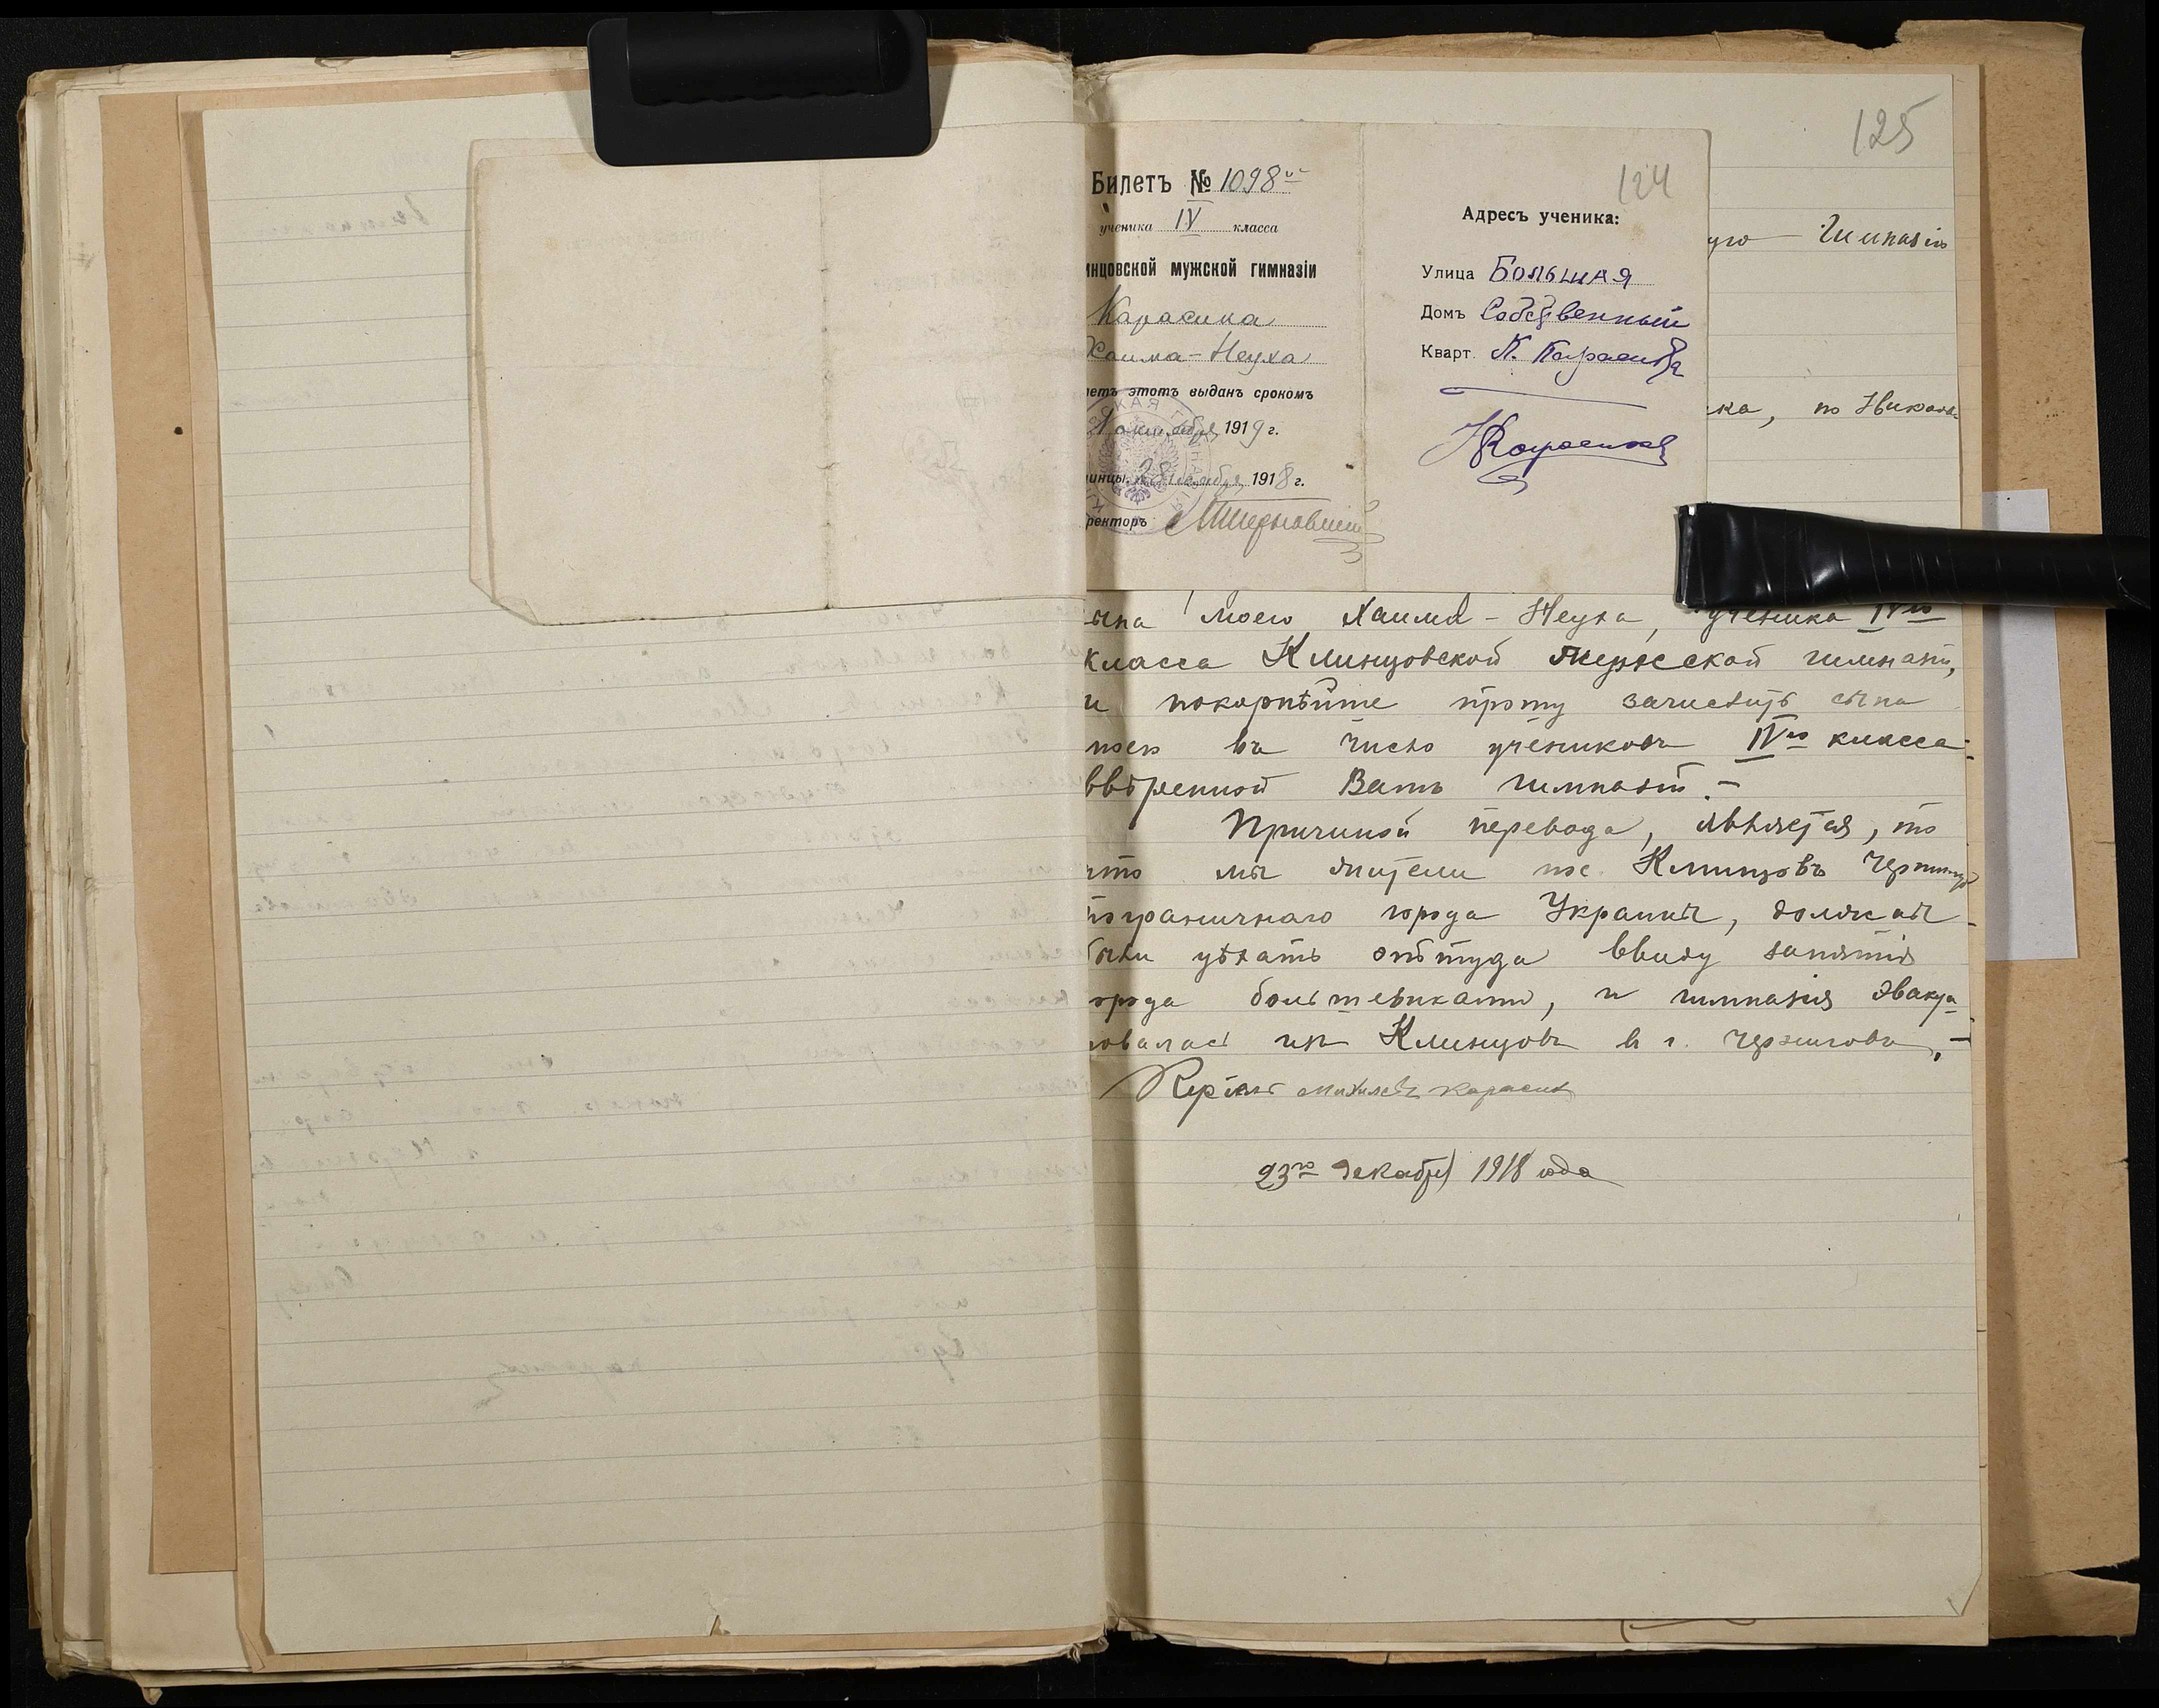 125
124
Билетъ № 1098
ученика IV класса
инцовской мужской гимназіи
Карасика
Хаима-Неуха
летъ этотъ выданъ срокомъ
1919 г.
инцы, 28 1918 г.
ректоръ
Адресъ ученика:
Улица Большая
Домъ Собственный
Кварт. К. Карасика
Гимназію
ка, по
сына моего Хаима-Неуха, ученика IVго
класса Клинцовской Мужской гимназіи,
и покорнѣйше прошу зачислить сына
моего въ число учениковъ IVго класса
ввѣренной Вамъ гимназіи.-
Причиной перевода, является, то
что мы жители пос. Клинцовъ
пограничнаго города Украины, должны
были уѣхать оттуда ввиду занятія
города большевиками, и гимназія эваку-
овалась изъ Клинцовъ въ г. Черниговъ.-
Карасикъ
23го декабря 1918 года